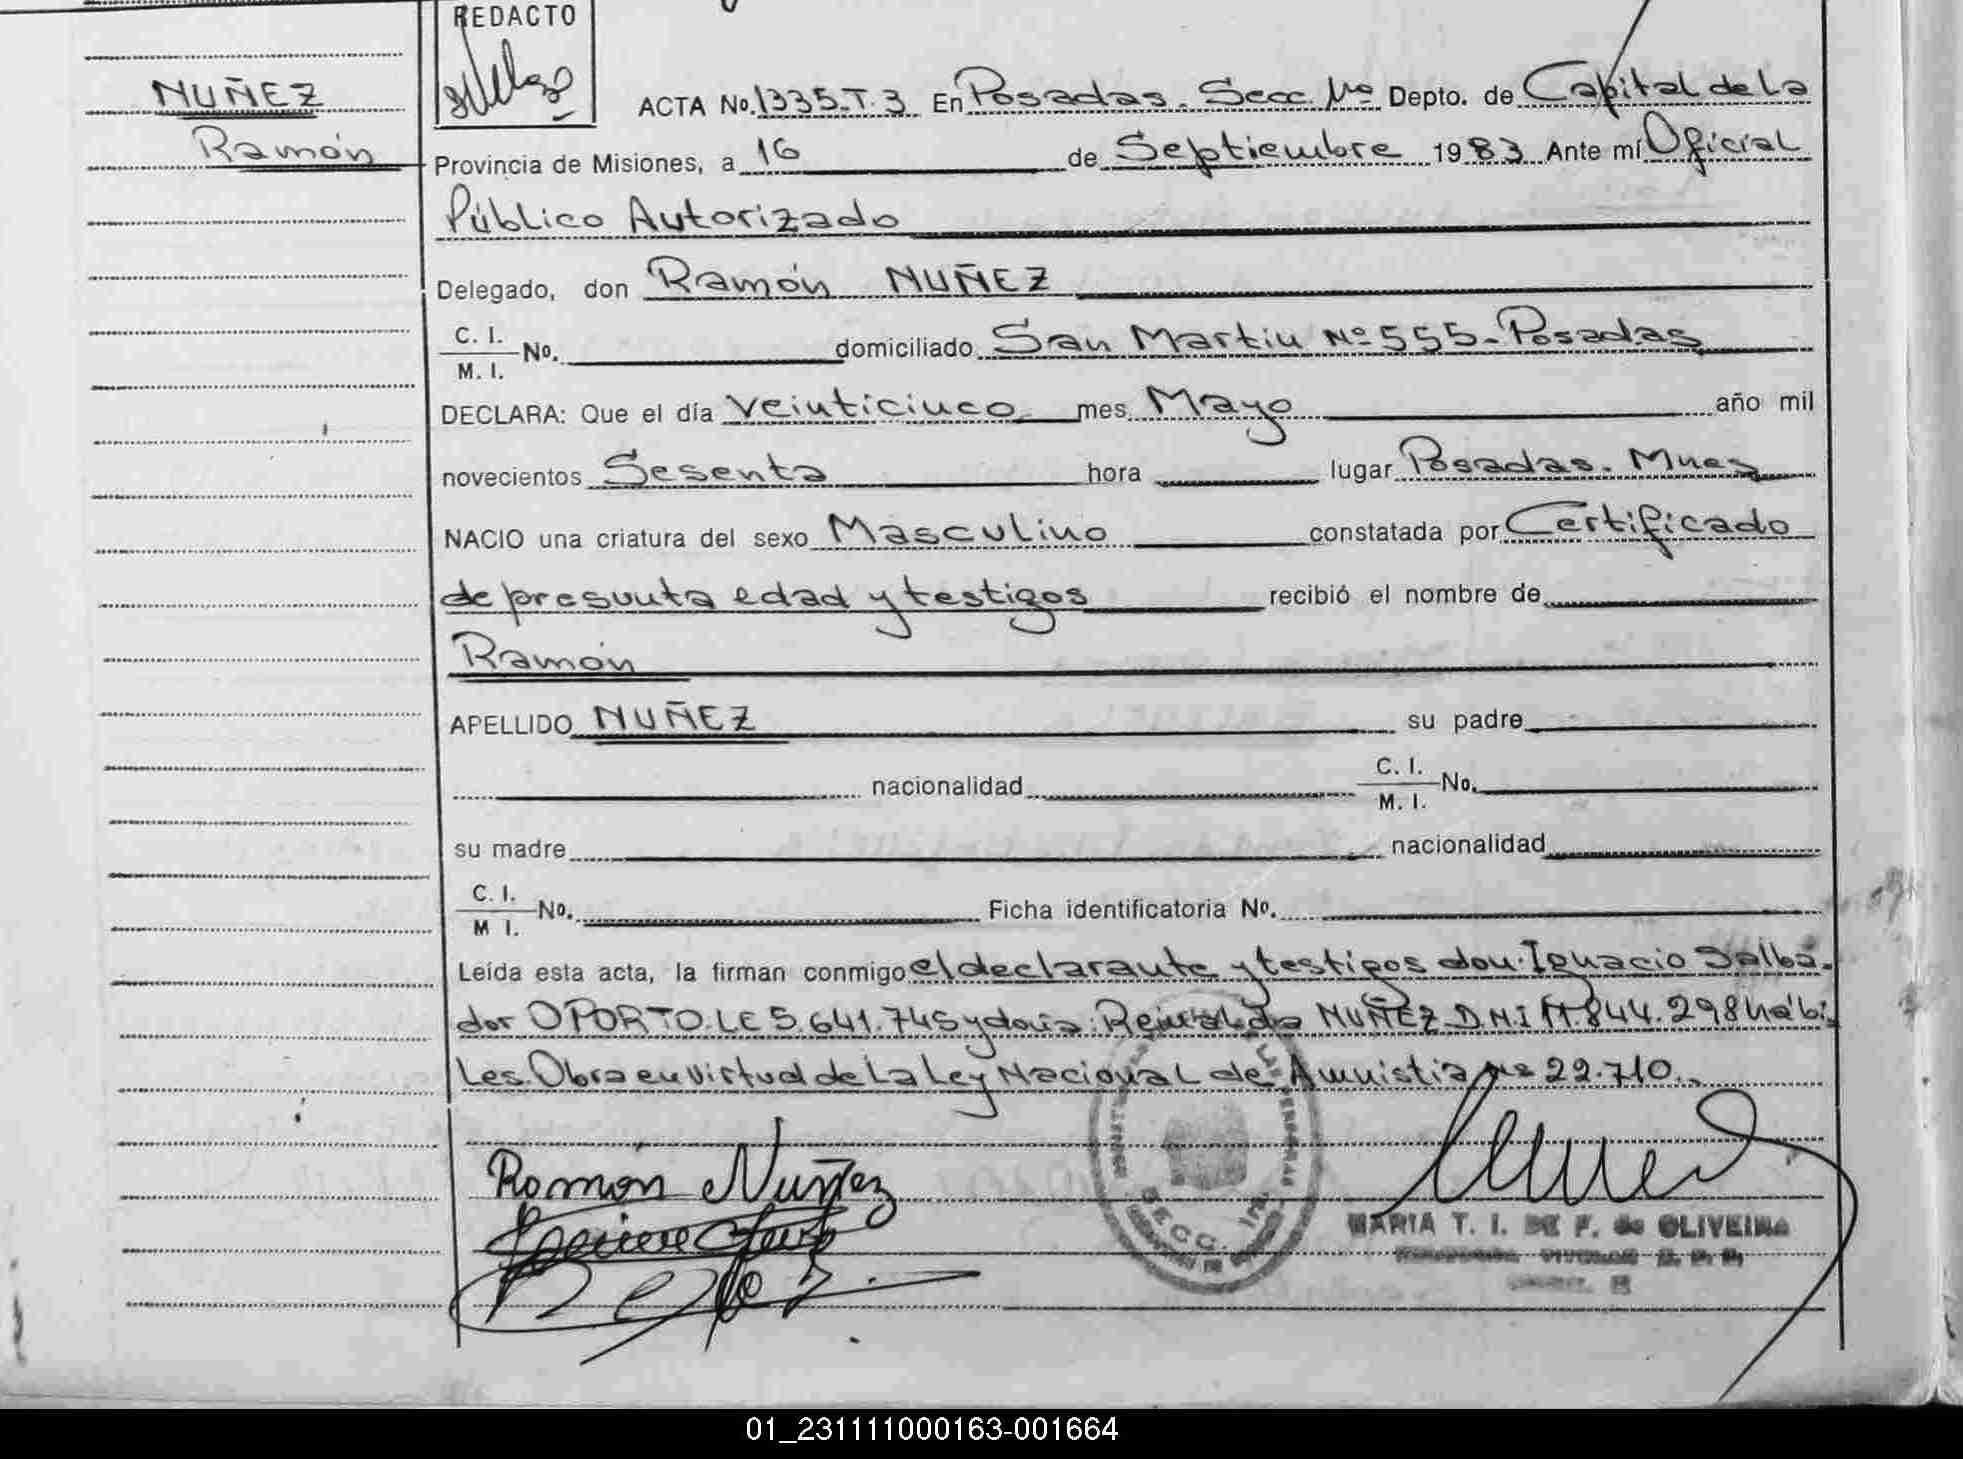 REDACTO
NUÑEZ
Ramón
ACTA No. 1335.T.3 En Posadas. Secc. 1ra Depto. de Capital de La
Provincia de Misiones, a 16 de Septiembre 1983 Ante mí Oficial
Público Autorizado
Delegado, don Ramón NUÑEZ
C. I.
M. I. No. domiciliado San Martin Nº 555-Posadas
DECLARA: Que el día veinticinco mes Mayo año mil
novecientos Sesenta hora lugar Posadas. Mnes
NACIO una criatura del sexo Masculino constatada por Certificado
de presunta edad y testigos recibió el nombre de
Ramón
APELLIDO NUÑEZ su padre
nacionalidad C. I.
M. I. No.
su madre nacionalidad
C. I.
M I. No. Ficha identificatoria No.
Leída esta acta, la firman conmigo el declarante y testigos don: Ignacio Salba.
dor OPORTO. LE 5.641.745 y doña: NUÑEZ D.N.I 844.298 hábi
les. Obra en virtud de La Ley Nacional de Amnistia Nº 22.710.
Ramón Nuñez
SECC. 1RA
MARIA T. I. DE F. de OLIVEIRA
01_231111000163-001664